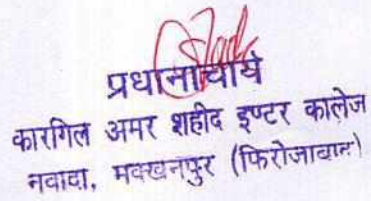 प्रधानाचार्य
कारगिल अमर शहीद इण्टर कालेज
नवादा, मक्खनपुर (फिरोजाबाद)